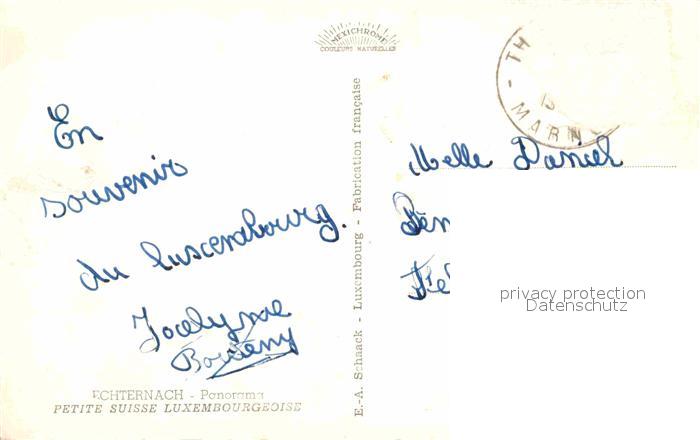 MEXICHROME
COULEURS NATURELLES
TH
15
MARN
En
souvenir
du Luxembourg.
Jocelyne
ECHTERNACH - Panorama
PETITE SUISSE LUXEMBOURGEOISE
E.-A. Schaack - Luxembourg - Fabrication française
Melle Daniel
privacy protection
Datenschutz